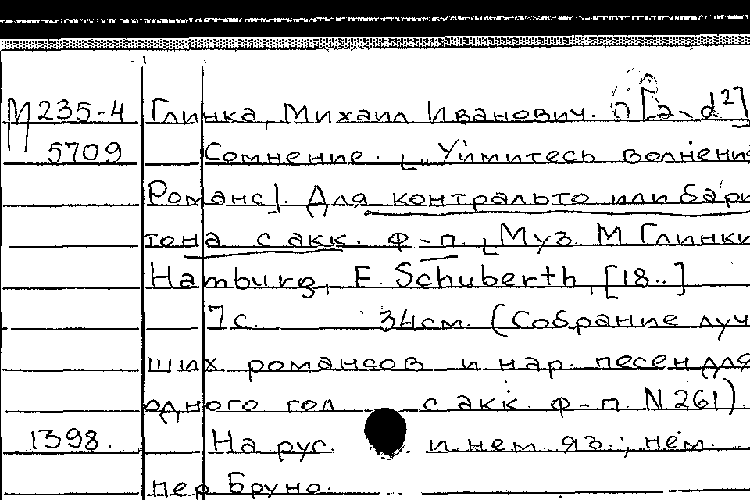 М 235-4 Глинка, Михаил Иванович. [a-d²]
5709 Сомнение. [„Уймитесь волнени
Романс]. Для контральто или бари
тона с акк. ф-п. [Муз. М Глинки
Hamburg, F. Schuberth, [18..]
7 с. 34см. (Собрание луч
ших романсов и нар. песен для
одного гол с акк. ф-п. N 261)
1398. На рус. и нем яз.; нем.
пер Бруно.